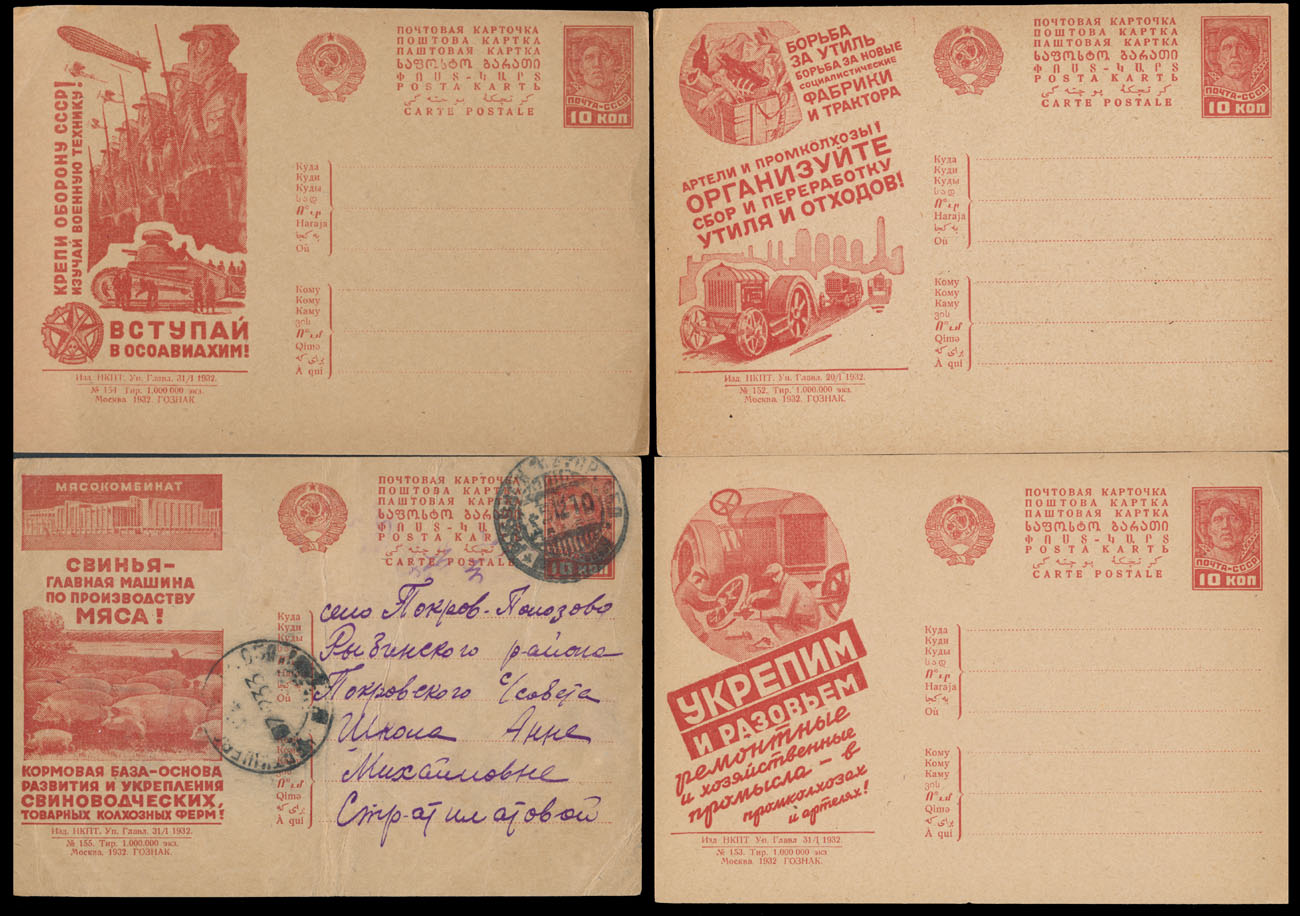 КРЕПИ ОБОРОНУ СССР!
ИЗУЧАЙ ВОЕННУЮ ТЕХНИКУ!
ВСТУПАЙ
В ОСОАВИАХИМ!
Изд. НКПТ. Уп. Главл. 31/I 1932.
№ 154 Тир. 1.000 000 экз.
Москва 1932. ГОЗНАК.
ПОЧТОВАЯ КАРТОЧКА
ПОШТОВА КАРТКА
ПАШТОВАЯ КАРТКА
ᲡᲐᲤᲝᲡᲢᲝ ᲑᲐᲠᲐᲗᲘ
ՓՈՍՏ-ՔԱՐՏ
POSTA KARTЬ
CARTE POSTALE
ПОЧТА-СССР
10 КОП
Куда
Куди
Куды
Haraja
Où
Кому
Кому
Каму
Qimə
À qui
БОРЬБА
ЗА УТИЛЬ
БОРЬБА ЗА НОВЫЕ
СОЦИАЛИСТИЧЕСКИЕ
ФАБРИКИ
И ТРАКТОРА
АРТЕЛИ И ПРОМКОЛХОЗЫ!
ОРГАНИЗУЙТЕ
СБОР И ПЕРЕРАБОТКУ
УТИЛЯ И ОТХОДОВ!
Изд. НКПТ. Уп. Главл. 20/I 1932.
№ 152. Тир. 1.000.000 экз.
Москва. 1932. ГОЗНАК.
ПОЧТОВАЯ КАРТОЧКА
ПОШТОВА КАРТКА
ПАШТОВАЯ КАРТКА
ᲡᲐᲤᲝᲡᲢᲝ ᲑᲐᲠᲐᲗᲘ
ՓՈՍՏ-ՔԱՐՏ
POSTA KARTЬ
CARTE POSTALE
ПОЧТА-СССР
10 КОП
Куда
Куди
Куды
Haraja
Où
Кому
Кому
Каму
Qimə
À qui
МЯСОКОМБИНАТ
СВИНЬЯ-
ГЛАВНАЯ МАШИНА
ПО ПРОИЗВОДСТВУ
МЯСА!
КОРМОВАЯ БАЗА-ОСНОВА
РАЗВИТИЯ И УКРЕПЛЕНИЯ
СВИНОВОДЧЕСКИХ,
ТОВАРНЫХ КОЛХОЗНЫХ ФЕРМ!
Изд. НКПТ. Уп. Главл. 31/I 1932.
№ 155. Тир. 1.000.000 экз.
Москва. 1932. ГОЗНАК.
ПОЧТОВАЯ КАРТОЧКА
ПОШТОВА КАРТКА
ПАШТОВАЯ КАРТКА
ᲡᲐᲤᲝᲡᲢᲝ ᲑᲐᲠᲐᲗᲘ
ՓՈՍՏ-ՔԱՐՏ
POSTA KARTЬ
CARTE POSTALE
10 КОП
Куда
Куди
Куды
Où
Qimə
À qui
село Покров-Полозово
Рыбинского района
Покровского с/совета
Школа Анне
Михаиловне
Стратилатовой
УКРЕПИМ
И РАЗОВЬЕМ
ремонтные
и хозяйственные
промысла - в
промколхозах
и артелях!
Изд НКПТ. Уп. Главл 31/I 1932.
№ 153. Тир. 1.000 000 экз
Москва 1932 ГОЗНАК.
ПОЧТОВАЯ КАРТОЧКА
ПОШТОВА КАРТКА
ПАШТОВАЯ КАРТКА
ᲡᲐᲤᲝᲡᲢᲝ ᲑᲐᲠᲐᲗᲘ
ՓՈՍՏ-ՔԱՐՏ
POSTA KARTЬ
CARTE POSTALE
ПОЧТА-СССР
10 КОП
Куда
Куди
Куды
Haraja
Où
Кому
Кому
Каму
Qimə
À qui